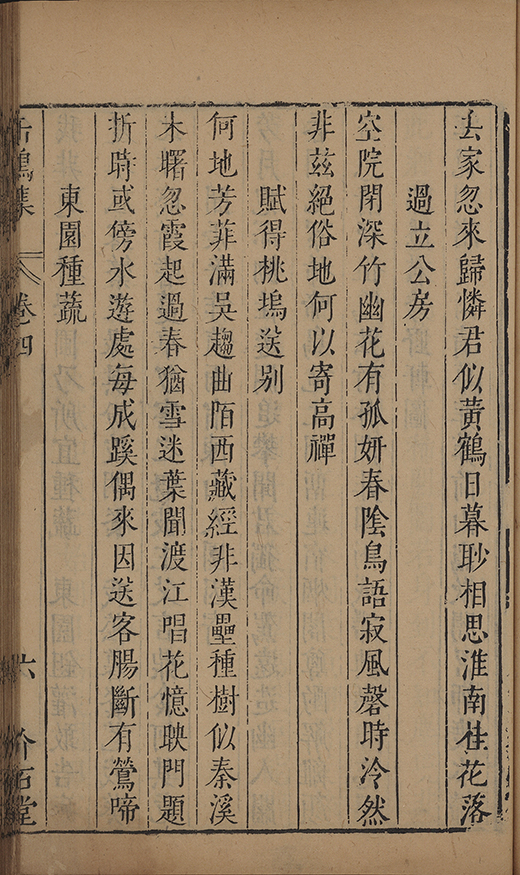 去家忽來歸憐君似黃鶴日暮眇相思淮南桂花落
過立公房
空院閉深竹幽花有孤妍春陰鳥語寂風磬時泠然
非茲絕俗地何以寄高禪
賦得桃塢送别
何地芳菲滿吳趨曲陌西藏經非漢壘種樹似秦溪
未曙忽霞起過春猶雪迷葉聞渡江唱花憶映門題
折時或傍水遊處每成蹊偶來因送客腸斷有鶯啼
東園種蔬
集 卷四 六 石堂